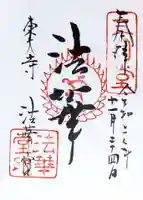 奉拝
令和二年
十一月二十四日
法華
東大寺
法華堂
法華
堂